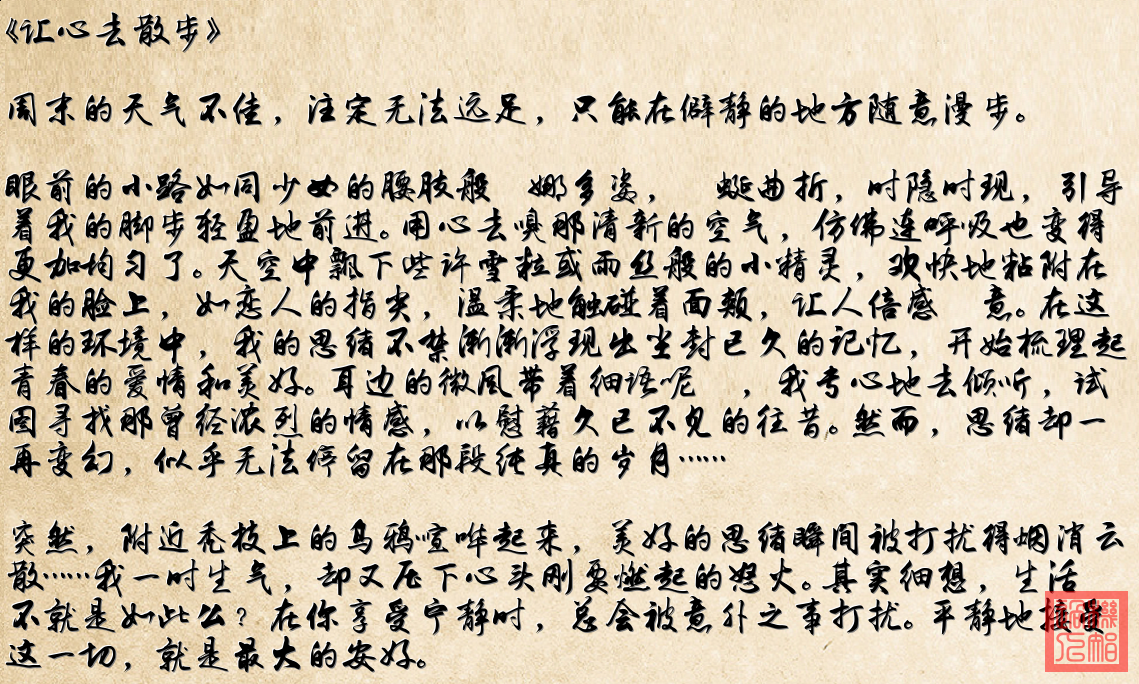 《让心去散步》
周末的天气不佳，注定无法远足，只能在僻静的地方随意漫步。
眼前的小路如同少女的腰肢般 娜多姿， 蜒曲折，时隐时现，引导
着我的脚步轻盈地前进。用心去嗅那清新的空气，仿佛连呼吸也变得
更加均匀了。天空中飘下些许雪粒或雨丝般的小精灵，欢快地粘附在
我的脸上，如恋人的指尖，温柔地触碰着面颊，让人倍感 意。在这
样的环境中，我的思绪不禁渐渐浮现出尘封已久的记忆，开始梳理起
青春的爱情和美好。耳边的微风带着细语呢 ，我专心地去倾听，试
图寻找那曾经浓烈的情感，以慰藉久已不见的往昔。然而，思绪却一
再变幻，似乎无法停留在那段纯真的岁月……
突然，附近秃枝上的乌鸦喧哗起来，美好的思绪瞬间被打扰得烟消云
散……我一时生气，却又压下心头刚要燃起的怒火。其实细想，生活
不就是如此么？在你享受宁静时，总会被意外之事打扰。平静地接受
这一切，就是最大的安好。